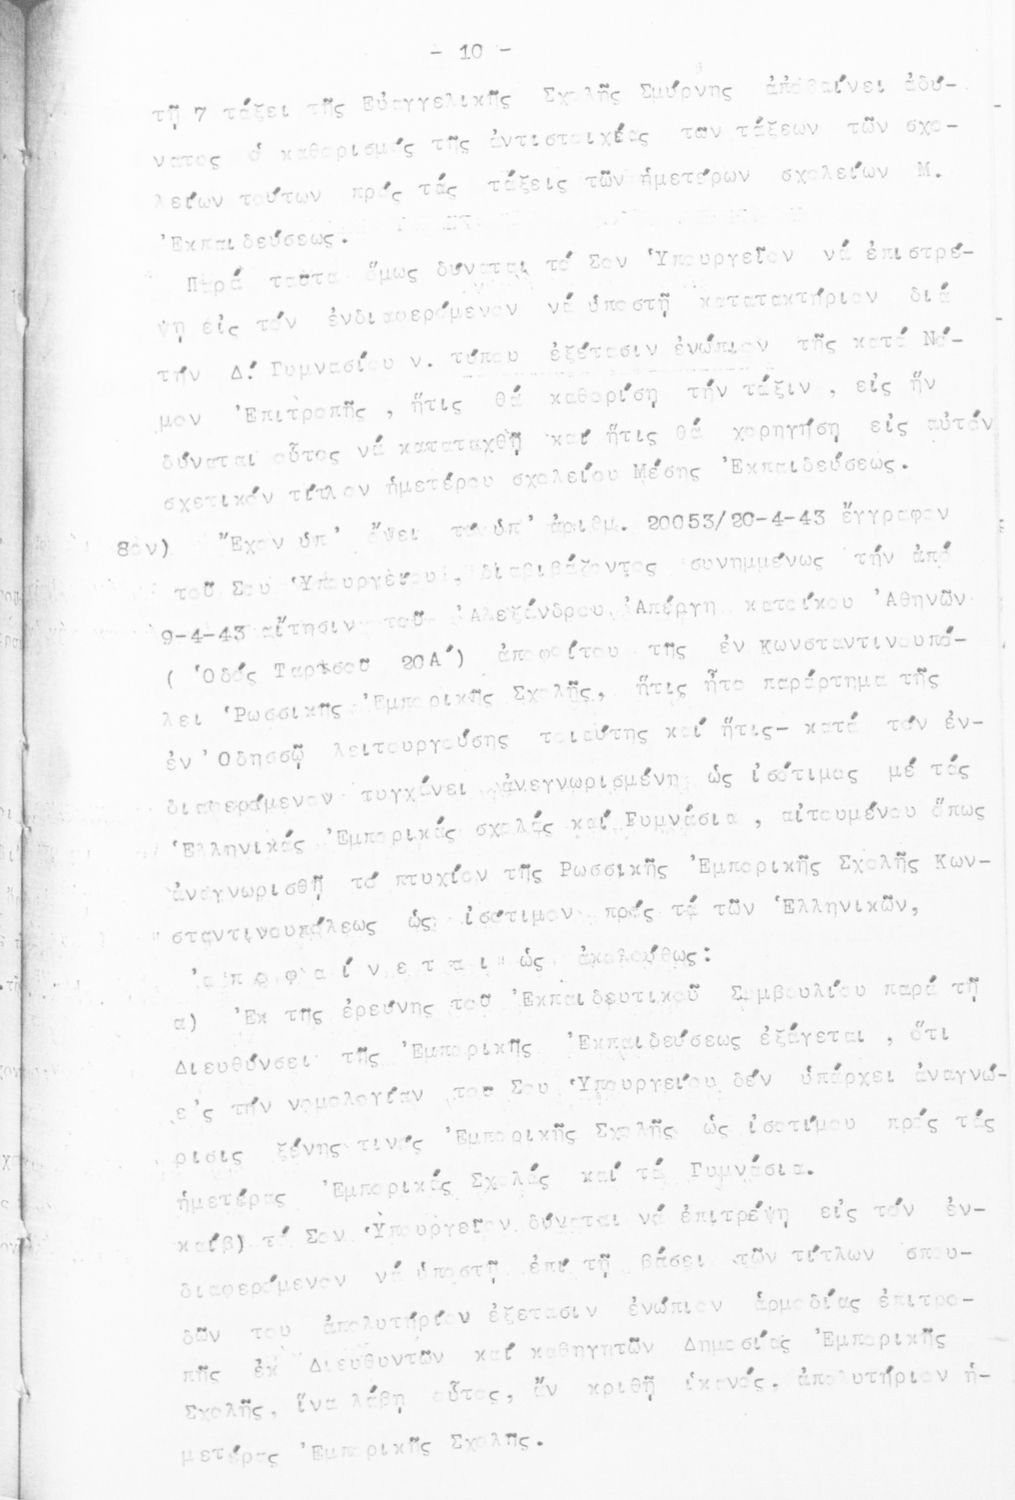 - 10 -
τῇ 7 τάξει τῆς Εὐαγγελικῆς Σχολῆς Σμύρνης ἀποβαίνει ἀδύ-
νατος ὁ καθορισμός τῆς ἀντιστοιχέας των τάξεων τῶν σχο-
λείων τούτων πρός τάς τάξεις τῶν ἡμετέρων σχολείων Μ.
Ἐκπαιδεύσεως.
Παρά ταῦτα ὅμως δύναται τό Σον Ὑπουργεῖον νά ἐπιστρέ-
ψῃ είς τόν ἐνδιαφερόμενον νά ὑποστῇ κατατακτήριον διά
τήν Δ! Γυμνασίου ν. τύπου ἐξέτασιν ἐνώπιον τῆς κατά Νό-
μον Ἐπιτροπῆς , ἥτις θά καθορίσῃ τήν τάξιν , εἰς ἥν
δύναται οὗτος νά καταταχθῇ καί ἥτις θά χορηγήσῃ εἰς αὐτόν
σχετικόν τίτλον ἡμετέρου σχολείου Μέσης Ἐκπαιδεύσεως.
8ον) Ἔχον ὑπ' ὄψει τό ὑπ' ἀριθμ. 20053/20-4-43 ἔγγραφον
τοῦ Σου Ὑπουργείου, διαβιβάζοντος συνημμένως τήν ἀπό
9-4-43 αἴτησιν τοῦ Ἀλεξάνδρου Ἀπέργη κατοίκου Ἀθηνῶν
( Ὁδός Ταρσοῦ 20Α΄) ἀποφοίτου τῆς ἐν Κωνσταντινουπό-
λει Ῥωσσικῆς Ἐμπορικῆς Σχολῆς, ἥτις ἦτο παράρτημα τῆς
ἐν Ὀδησσῷ λειτουργούσης τοιαύτης καί ἥτις- κατά τόν ἐν-
διαφερόμενον τυγχάνει ἀνεγνωρισμένη ὡς ἰσότιμος μέ τάς
Ἑλληνικάς Ἐμπορικάς σχολάς καί Γυμνάσια , αἰτουμένου ὅπως
ἀναγνωρισθῇ τό πτυχίον τῆς Ρωσσικῆς Ἐμπορικῆς Σχολῆς Κων-
σταντινουπόλεως ὡς ἰσότιμον πρός τά τῶν Ἑλληνικῶν,
Ἀ π ο φ α ί ν ε τ α ι ὡς ἀκολούθως:
α) Ἐκ τῆς ἐρεύνης τοῦ Ἐκπαιδευτικοῦ Συμβουλίου παρά τῇ
Διευθύνσει τῆς Ἐμπορικῆς Ἐκπαιδεύσεως ἐξάγεται , ὅτι
εἰς τήν νομολογίαν του Σου Ὑπουργείου δέν ὑπάρχει ἀναγνώ-
ρισις ξένης τινός Ἐμπορικῆς Σχολῆς ὡς ἰσοτίμου πρός τάς
ἡμετέρας Ἐμπορικάς Σχολάς καί τά Γυμνάσια.
καίβ) τό Σον Ὑπουργεῖον δύναται νά ἐπιτρέψῃ εἰς τόν ἐν-
διαφερόμενον νά ὑποστῇ ἐπί τῇ βάσει τῶν τίτλων σπου-
δῶν του ἀπολυτήριον ἐξέτασιν ἐνώπιον ἁρμοδίας ἐπιτρο-
πῆς ἐκ Διευθυντῶν καί καθηγητῶν Δημοσίας Ἐμπορικῆς
Σχολῆς, ἵνα λάβῃ οὗτος, ἄν κριθῇ ἱκανός, ἀπολυτήριον ἡ-
μετέρας Ἐμπορικῆς Σχολῆς.